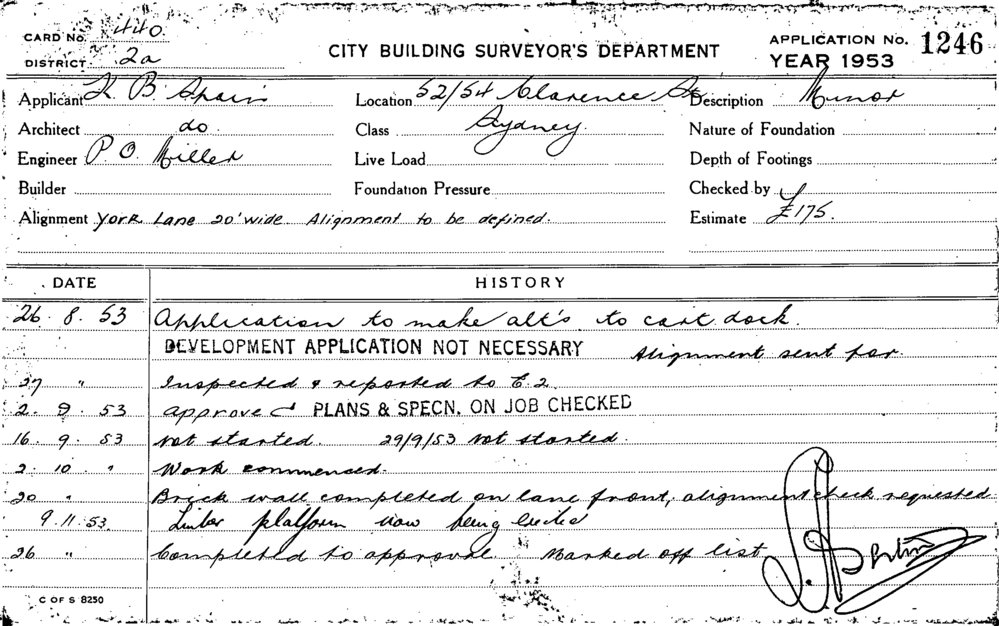 CARD No. 440.
DISTRICT 2a
CITY BUILDING SURVEYOR'S DEPARTMENT
APPLICATION No. 1246
YEAR 1953
Applicant K B Spain Location 52/54 Clarence St Description Minor
Architect do. Class Sydney Nature of Foundation
Engineer P.O. Miller Live Load Depth of Footings
Builder Foundation Pressure Checked by
Alignment York Lane 20' wide Alignment to be defined. Estimate £175.
DATE HISTORY
26. 8. 53 Application to make alt's to cart dock.
DEVELOPMENT APPLICATION NOT NECESSARY Alignment sent for.
27 " Inspected & reported to E.2.
2. 9. 53 Approved PLANS & SPECN. ON JOB CHECKED
16. 9. 53 Not started. 29/9/53 Not started.
2. 10. " Work commenced.
20 " Brick wall completed on lane front, alignment check requested
9.11.53. Timber platform now being erected
26 " Completed to approval Marked off list
C OF S 8250